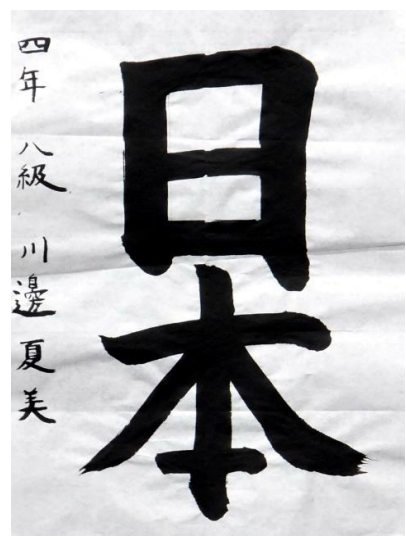 日本
四年 八級 川邊夏美